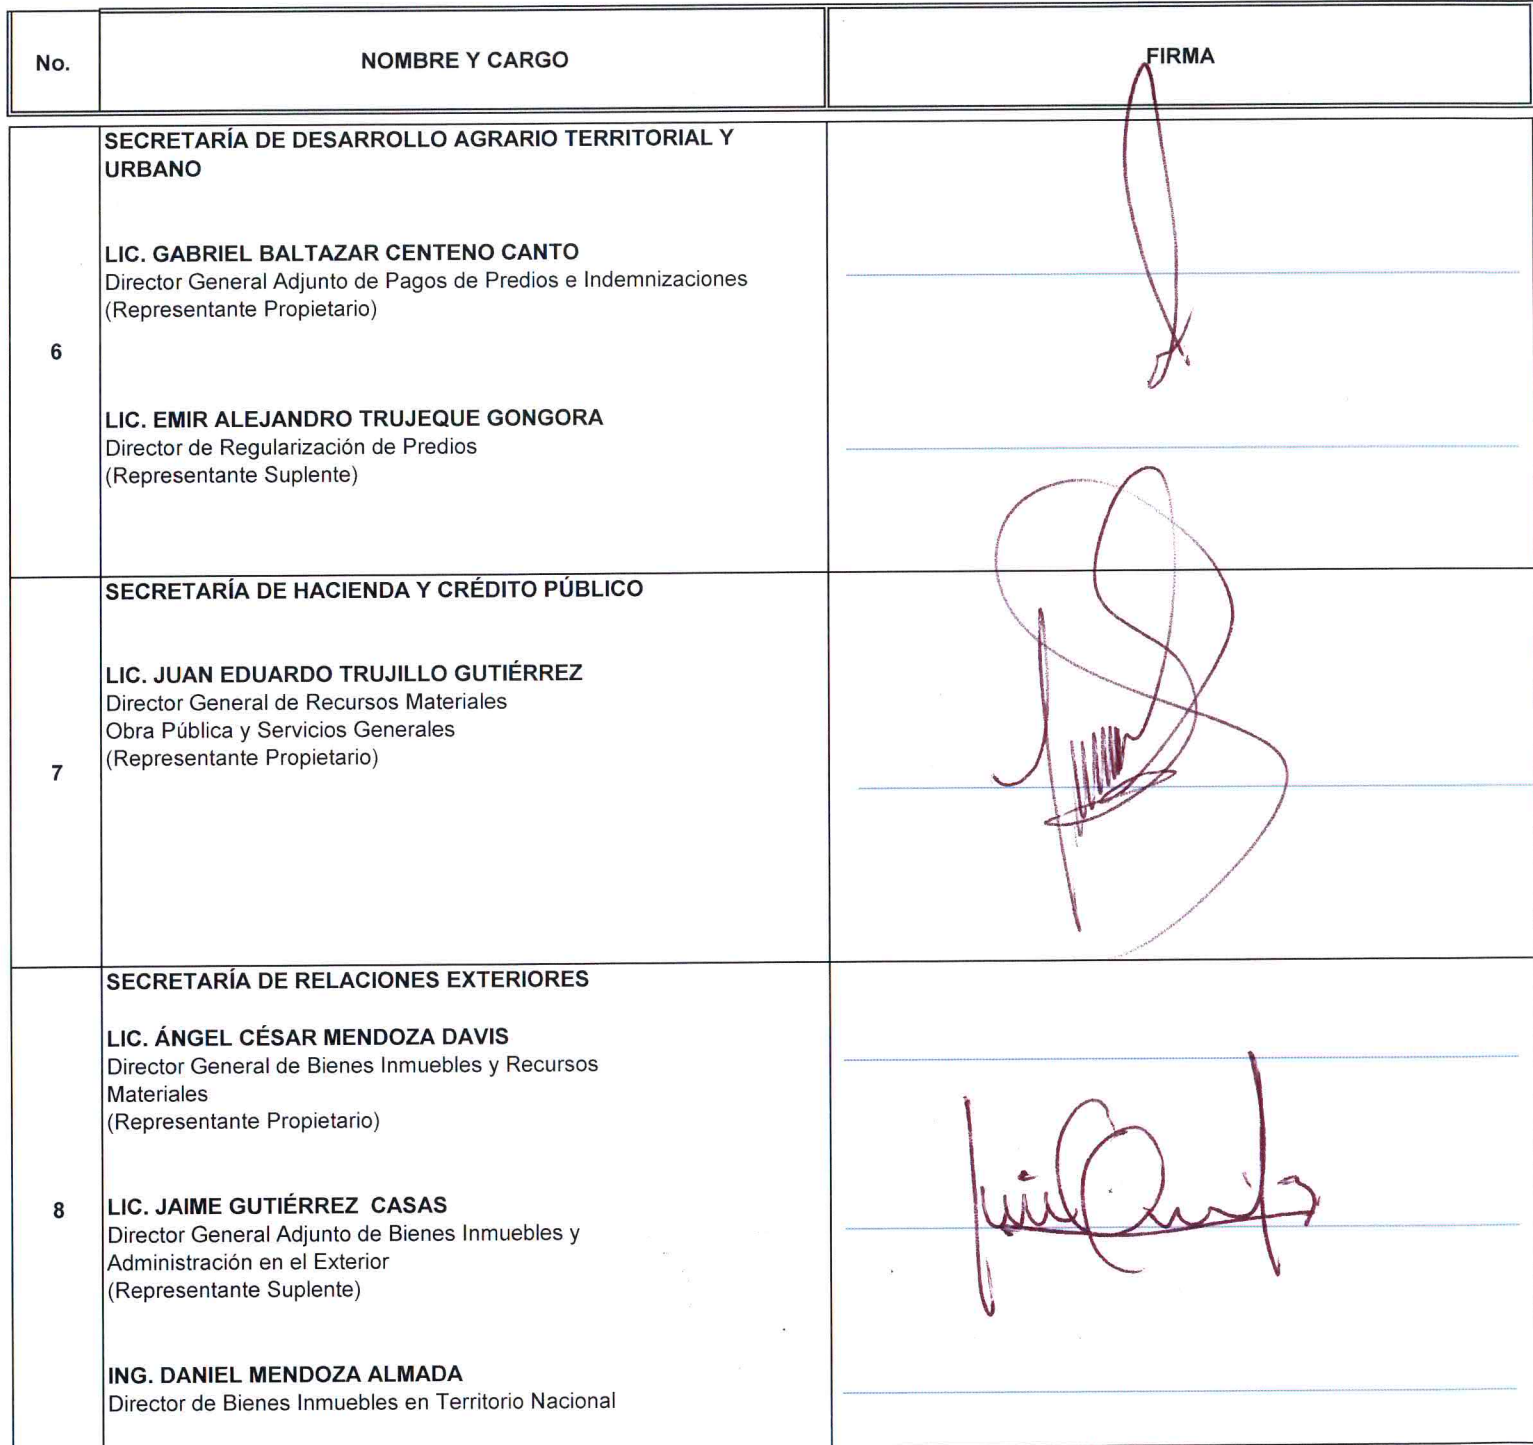 No.
NOMBRE Y CARGO
FIRMA
SECRETARÍA DE DESARROLLO AGRARIO TERRITORIAL Y
URBANO
LIC. GABRIEL BALTAZAR CENTENO CANTO
Director General Adjunto de Pagos de Predios e Indemnizaciones
(Representante Propietario)
6
LIC. EMIR ALEJANDRO TRUJEQUE GONGORA
Director de Regularización de Predios
(Representante Suplente)
SECRETARÍA DE HACIENDA Y CRÉDITO PÚBLICO
LIC. JUAN EDUARDO TRUJILLO GUTIÉRREZ
Director General de Recursos Materiales
Obra Pública y Servicios Generales
(Representante Propietario)
7
SECRETARÍA DE RELACIONES EXTERIORES
LIC. ÁNGEL CÉSAR MENDOZA DAVIS
Director General de Bienes Inmuebles y Recursos
Materiales
(Representante Propietario)
8
LIC. JAIME GUTIÉRREZ  CASAS
Director General Adjunto de Bienes Inmuebles y
Administración en el Exterior
(Representante Suplente)
ING. DANIEL MENDOZA ALMADA
Director de Bienes Inmuebles en Territorio Nacional